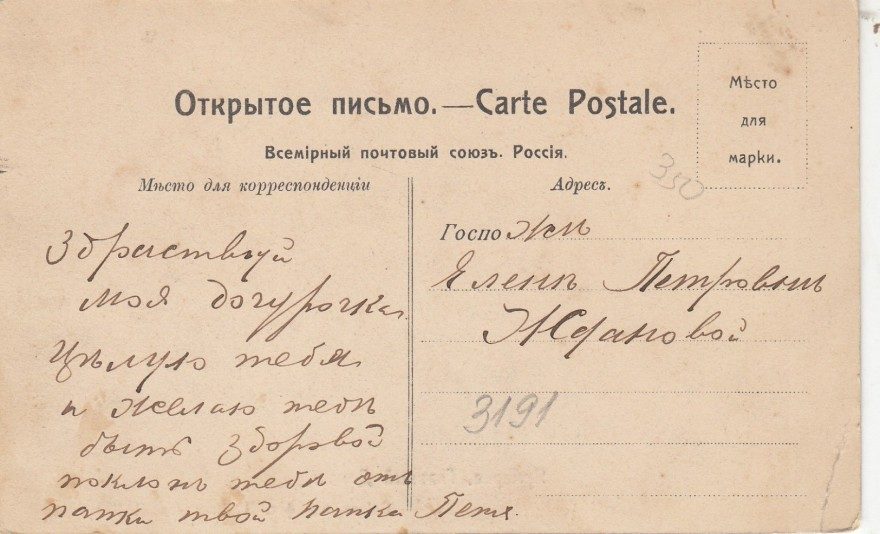 Открытое письмо. — Carte Postale.
Всемірный почтовый союзъ. Россія.
Мѣсто
для
марки.
350
Мѣсто для корреспонденціи
Здраствуй
моя дочурочка
Цѣлую тебя
и желаю тебѣ
быть здоровой
поклонъ тебѣ отъ
папки твой папка Петя.
Адресъ.
Госпожѣ
Еленѣ Петровнѣ
Ждановой
3191